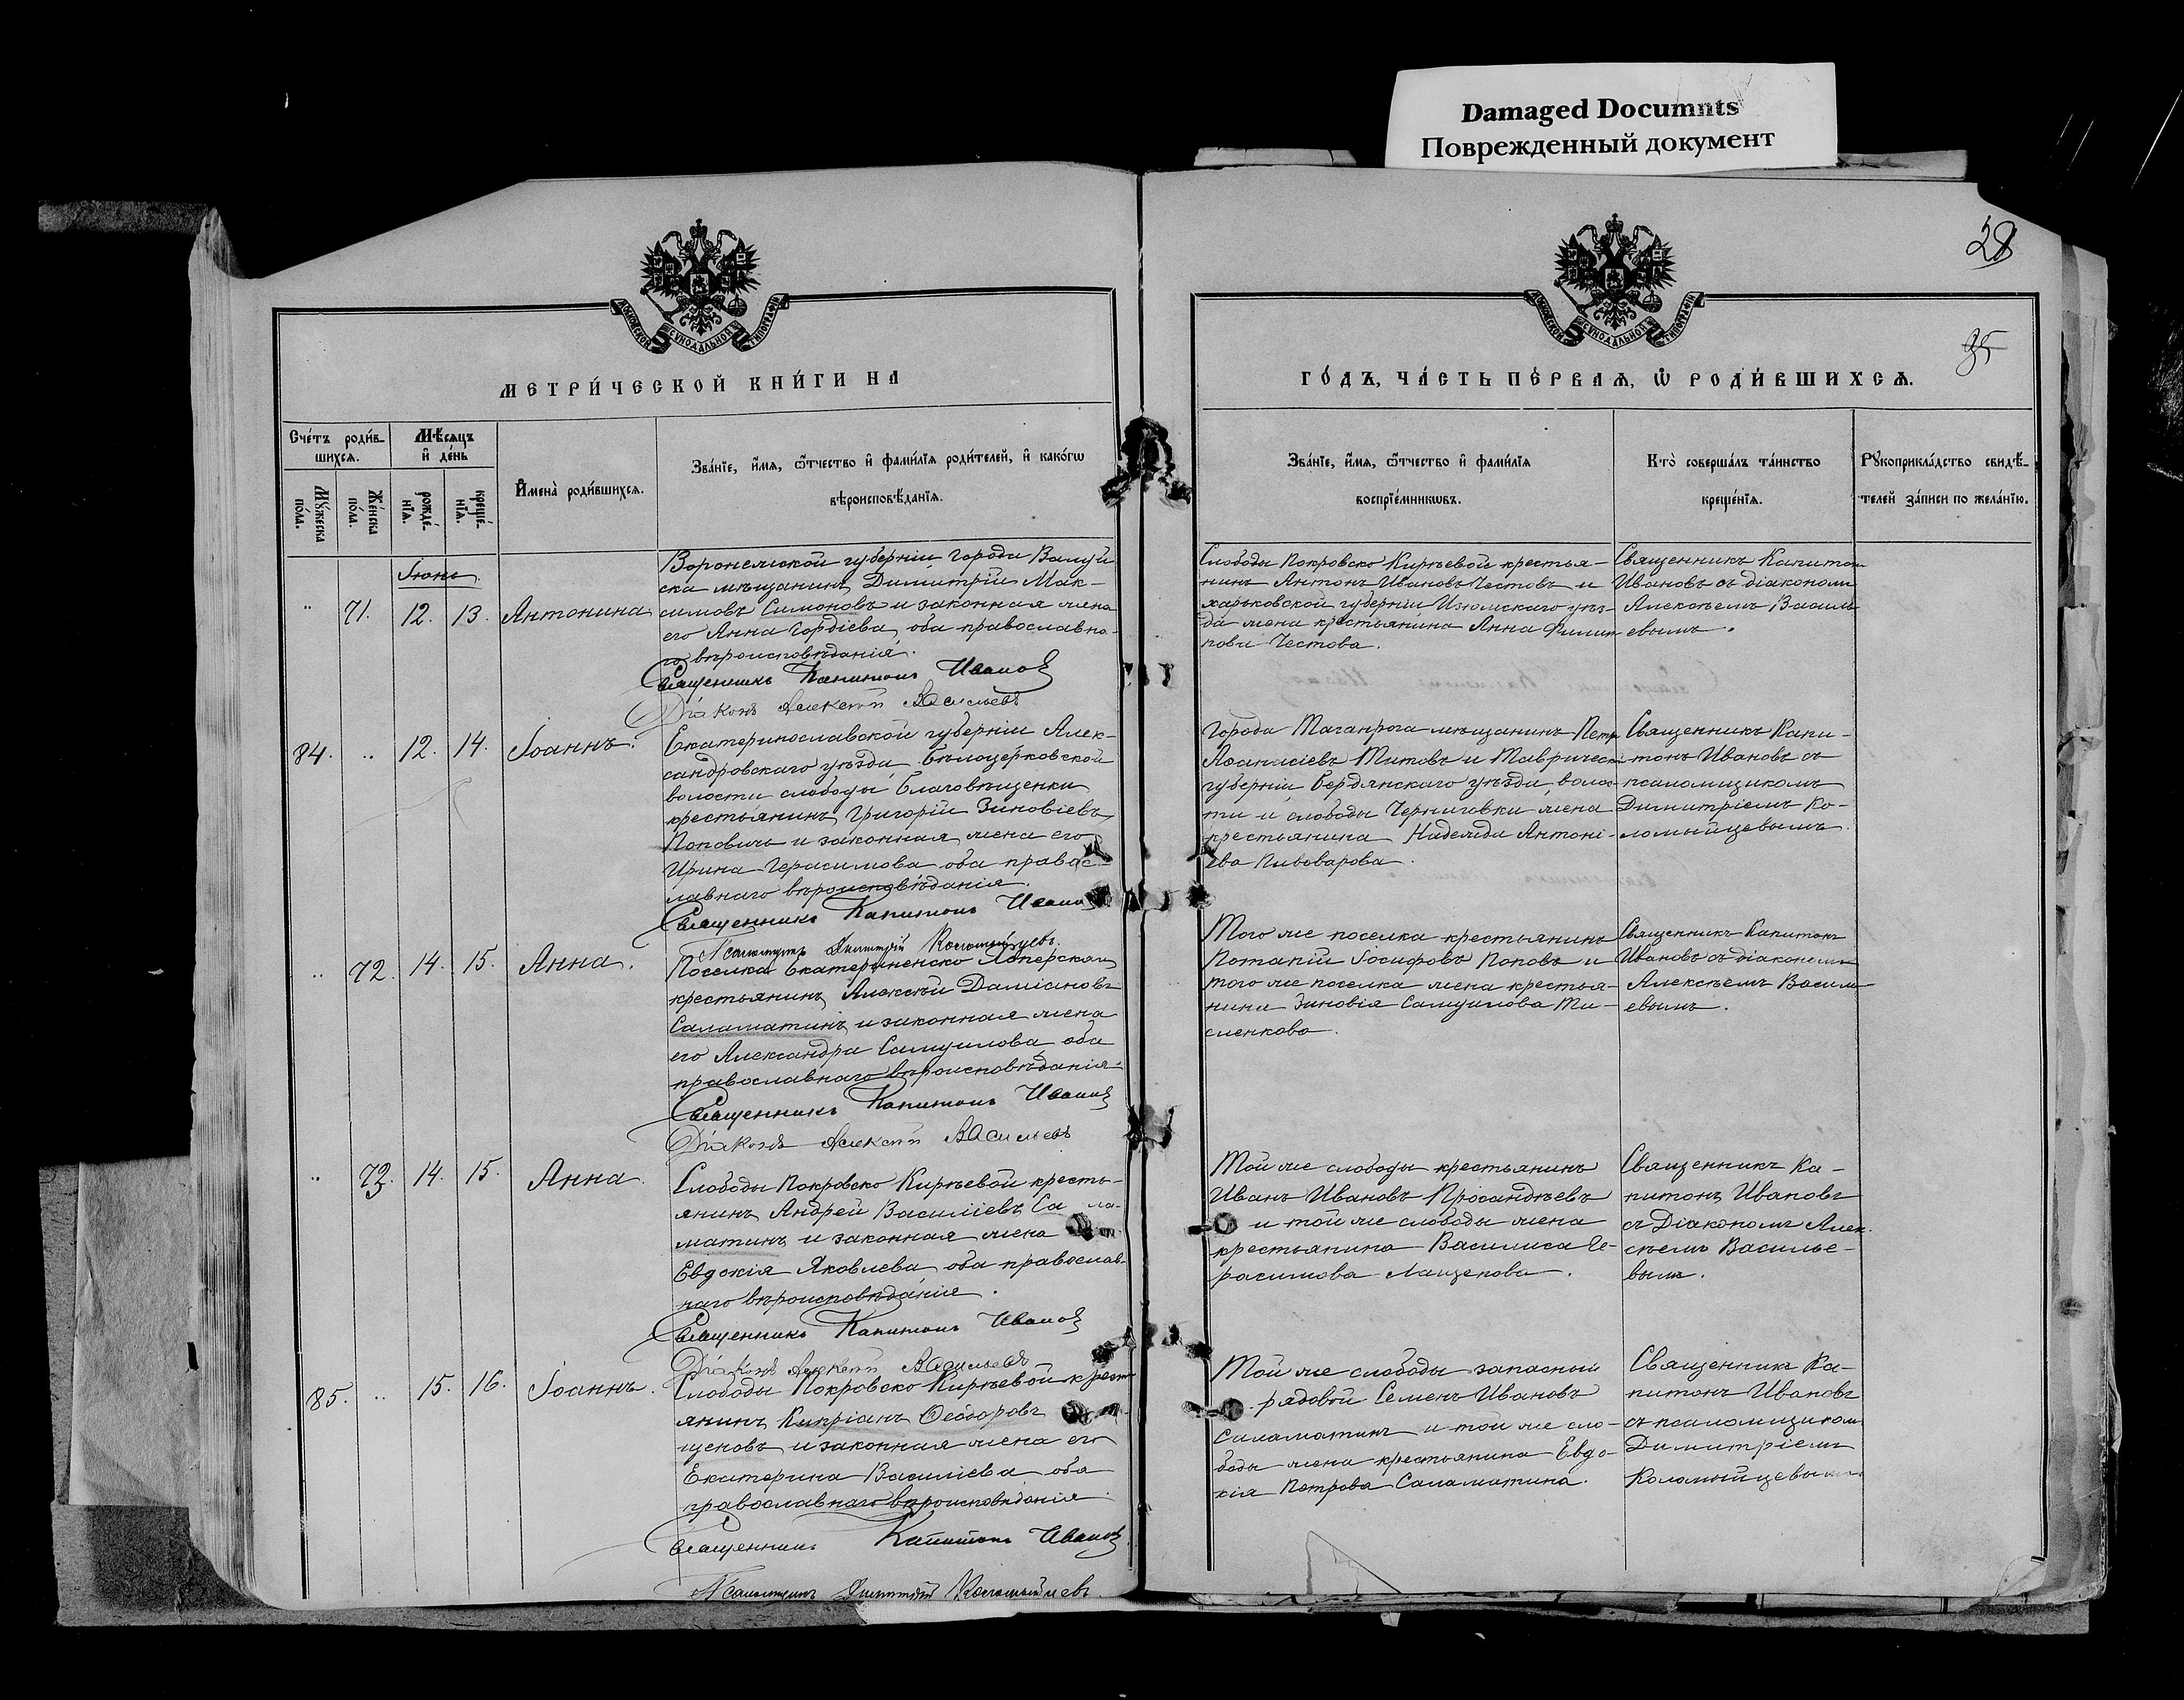 Damaged Documnts
Поврежденный документ
28
35
МЕТРИ́ЧЕСКОЙ КНИ́ГИ НА
ГО́ДЪ, ЧА́СТЬ ПЕ́РВАѦ, Ѡ҆ РОДИ́ВШИХСѦ.
Сче́тъ роди́в-
шихсѧ.
Мѣ́сѧцъ
и҆ де́нь
Мꙋ́жеска
по́ла.
Же́нска
по́ла.
рожде́-
нїѧ.
креще́-
нїѧ.
И҆мена̀ роди́вшихсѧ.
Зва́нїе, и҆́мѧ, ѻ҆́тчество и҆ фами́лїѧ роди́телей, и҆ како́гѡ
вѣроисповѣ́данїѧ.
Зва́нїе, и҆́мѧ, ѻ҆́тчество и҆ фами́лїѧ
воспрїе́мникѡвъ.
Кто̀ соверша́лъ та́инство
креще́нїѧ.
Рꙋкоприкла́дство свидѣ́-
телей за́писи по жела́нїю.
Іюнь
71. 12. 13. Антонина
Воронежской губерніи, города Валуй
ска мѣщанинъ Димитрій Мак-
симовъ Симоновъ и законная жена
его Анна Гордіева, оба православна-
го вѣроисповѣданія.
Священникъ Капитонъ Ивановъ
Діаконъ Алексѣй Васильевъ
Слободы Покровско Кирѣевой крестья-
нинъ Антонъ Ивановъ Честовъ и
харьковской губерніи Изюмскаго уѣз-
да жена крестьянина Анна Филип
пова Честова.
Священникъ Капитон
Ивановъ съ діакономъ
Алексѣемъ Василь
евымъ.
84. 12. 14. Іоаннъ.
Екатеринославской губерніи Алек-
сандровскаго уѣзда, Бѣлоцерковской
волости слободы Благовѣщенки
крестьянинъ Григорій Зиновіевъ
Поповичъ и законная жена его
Ирина Герасимова оба правос-
лавнаго вѣроисповѣданія.
Священникъ Капитонъ Иванов
Псаломщикъ Димитрій Коломыйцевъ
Города Таганрога мѣщанинъ Петръ
Аѳанасіевъ Титовъ и Таврическ
губерніи Бердянскаго уѣзда, волос-
ти и слободы Черниговки жена
крестьянина Надежда Антоні-
ева Пивоварова.
Священникъ Капи-
тонъ Ивановъ съ
псаломщикомъ
Димитріемъ Ко-
ломыйцевымъ.
72. 14. 15. Анна.
Поселка Екатериненско Хоперскаго
крестьянинъ Алексѣй Даміановъ
Саламатинъ и законная жена
его Александра Самуилова оба
православнаго вѣроисповѣданія
Священникъ Капитонъ Ивановъ
Діаконъ Алексѣй Васильевъ
Того же поселка крестьянинъ
Потапій Іосифовъ Поповъ и
того же поселка жена крестья-
нина Зиновія Самуилова Ти-
сленкова.
Священникъ Капитонъ
Ивановъ съ діакономъ
Алексѣемъ Василь
евымъ.
73. 14. 15. Анна.
Слободы Покровско Кирѣевой кресть-
янинъ Андрей Василіевъ Са ла-
матинъ и законная жена
Евдокія Яковлева, оба православ-
наго вѣроисповѣданія.
Священникъ Капитонъ Ивановъ
Діаконъ Алексѣй Васильевъ
Той же слободы крестьянинъ
Иванъ Ивановъ Просандѣевъ
и той же слободы жена
крестьянина Василиса Ге-
расимова Лащенова.
Священникъ Ка-
питонъ Ивановъ
съ Діакономъ Алек
сѣемъ Василье-
вымъ.
85. 15. 16. Іоаннъ.
Слободы Покровско Кирѣевой крест
янинъ Кипріанъ Ѳеодоровъ
щеновъ и законная жена его
Екатерина Василіева, оба
православнаго вѣроисповѣданія.
Священникъ Капитонъ Ивановъ
Псаломщикъ Димитрій Коломыйцевъ
Той же слободы запасный
рядовой Семенъ Ивановъ
Саламатинъ и той же сло-
боды жена крестьянина Евдо-
кія Петрова Саламатина.
Священникъ Ка-
питонъ Ивановъ
съ псаломщиком
Димитріемъ
Коломыйцевымъ